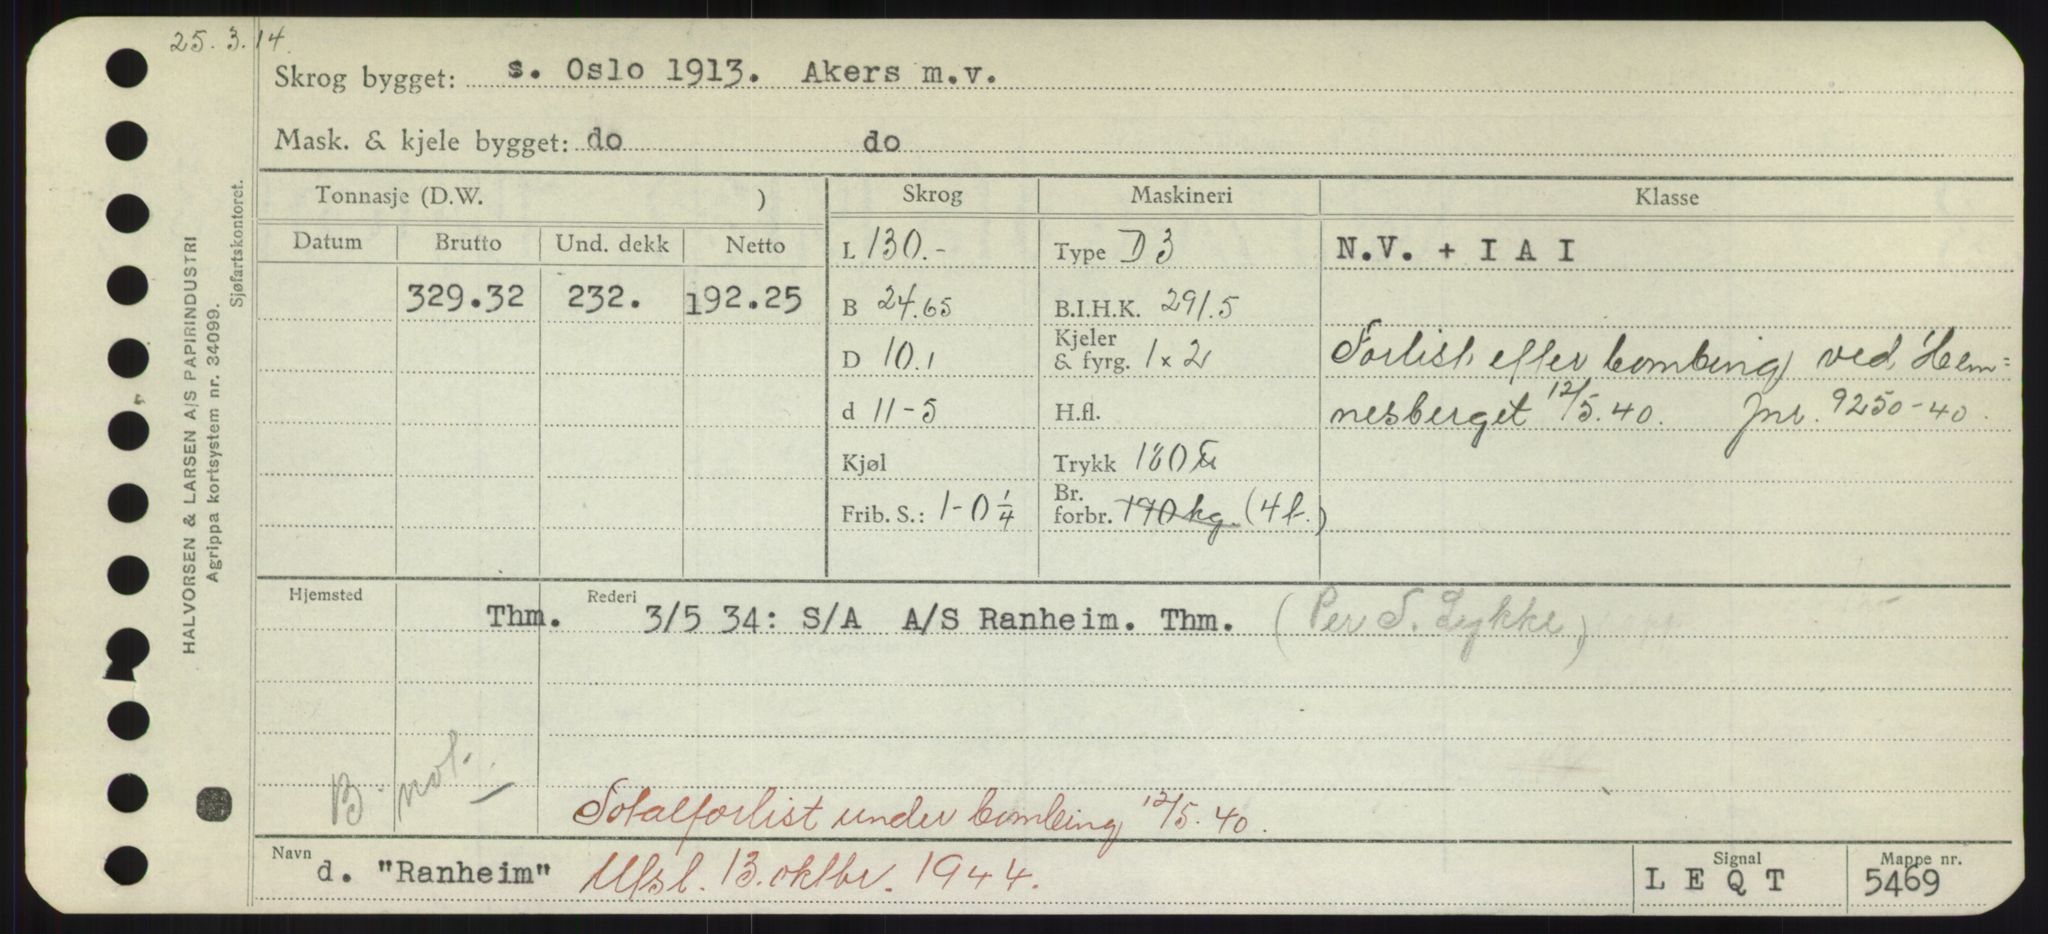 25.3.14.
Skrog bygget: s. Oslo 1913. Akers m.v.
Mask. & kjele bygget: do do
Tonnasje (D.W. ) Skrog Maskineri Klasse
Datum Brutto Und. dekk Netto L 130.- Type D 3 N.V. + I A I
329.32 232. 192.25 B 24.65 B.I.H.K. 291.5
D 10.1 Kjeler & fyrg. 1 x 2 Forlist efter bombing ved Hem=
d 11-5 H.fl. nesberget 12/5.40. Jnr. 9250-40.
Kjøl Trykk 180
Frib. S.: 1-0 1/4 Br. forbr. 170 kg. (4 f.)
Hjemsted Rederi
Thm. 3/5 34: S/A A/S Ranheim. Thm. (Per S. Lykke)
B. not.
Totalforlist under bombing 12/5.40.
Navn Signal Mappe nr.
d. "Ranheim" Utsl. 13. oktbr. 1944. L E Q T 5469
HALVORSEN & LARSEN A/S PAPIRINDUSTRI
Agrippa kortsystem nr. 34099.
Sjøfartskontoret.